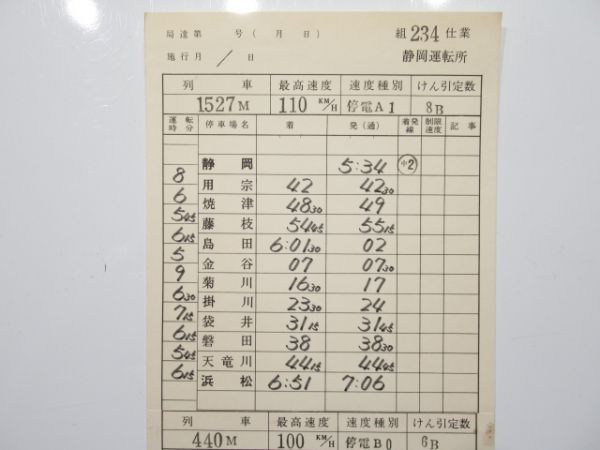 局達第 号 ( 月 日 ) 組 234 仕業
施行月 / 日 静岡運転所
列 車 最高速度 速度種別 けん引定数
1527M 110 KM/H 停電A1 8B
運転時分 停車場名 着 発(通) 着発線 制限速度 記事
静岡 5:34 中2
8
用宗 42 42 30
6
焼津 48 30 49
5 45
藤枝 54 45 55 15
6 15
島田 6:01 30 02
5
金谷 07 07 30
9
菊川 16 30 17
6 30
掛川 23 30 24
7 15
袋井 31 15 31 45
6 15
磐田 38 38 30
5 45
天竜川 44 15 44 45
6 15
浜松 6:51 7:06
列 車 最高速度 速度種別 けん引定数
440M 100 KM/H 停電B0 6B